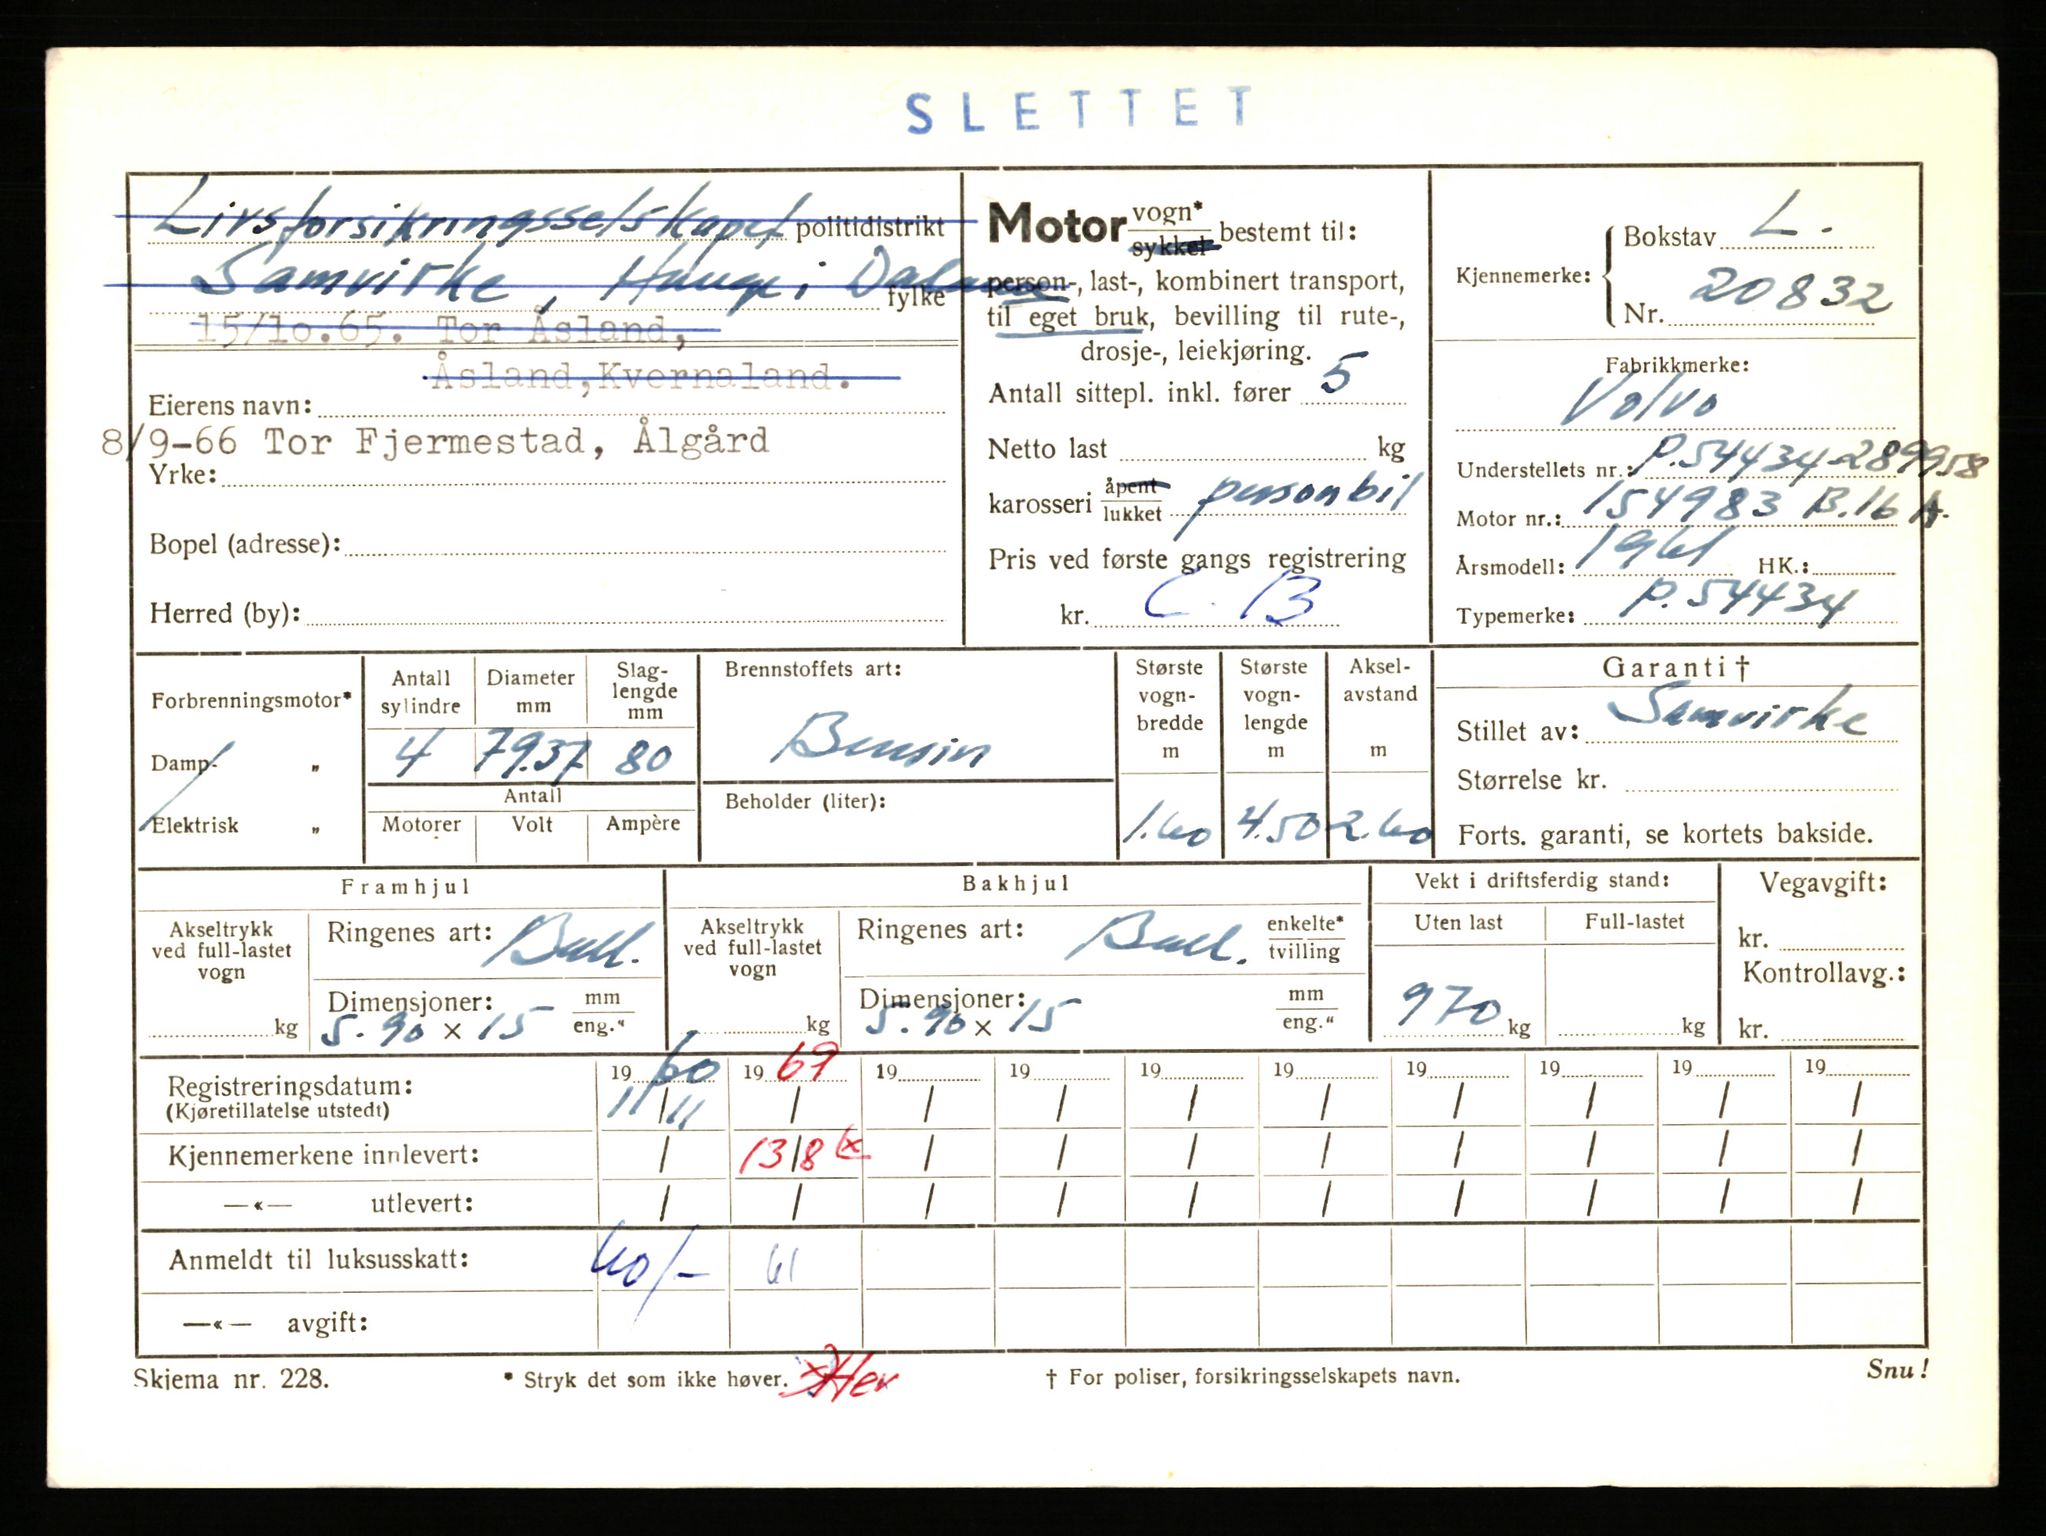 SLETTET
Livsforsikringsselskapet politidistrikt
Samvirke, Hauge i Dalane fylke
15/10.65. Tor Åsland,
Åsland, Kvernaland.
Eierens navn:
8/9-66 Tor Fjermestad, Ålgård
Yrke:
Bopel (adresse):
Herred (by):
Motor vogn* / sykkel bestemt til:
person-, last-, kombinert transport,
til eget bruk, bevilling til rute-,
drosje-, leiekjøring.
Antall sittepl. inkl. fører 5
Netto last kg
karosseri åpent / lukket personbil
Pris ved første gangs registrering
kr. C. B
Kjennemerke: Bokstav L.
Nr. 20832
Fabrikkmerke:
Volvo
Understellets nr.: P.54434-289958
Motor nr.: 154983 B.16 A.
Årsmodell: 1961 HK.:
Typemerke: P.54434
Forbrenningsmotor*
Damp- „
Elektrisk „
Antall sylindre 4
Diameter mm 79.37
Slag-lengde mm 80
Antall
Motorer Volt Ampère
Brennstoffets art:
Bensin
Beholder (liter):
Største vogn-bredde m 1.60
Største vogn-lengde m 4.50
Aksel-avstand m 2.60
Garanti †
Stillet av: Samvirke
Størrelse kr.
Forts. garanti, se kortets bakside.
Framhjul
Akseltrykk ved full-lastet vogn kg
Ringenes art: Ball.
Dimensjoner: mm / eng."
5.90 x 15
Bakhjul
Akseltrykk ved full-lastet vogn kg
Ringenes art: Ball. enkelte* / tvilling
Dimensjoner: mm / eng."
5.90 x 15
Vekt i driftsferdig stand:
Uten last Full-lastet
970 kg kg
Vegavgift:
kr.
Kontrollavg.:
kr.
Registreringsdatum: 1960 1969 19 19 19 19 19 19 19 19
(Kjøretillatelse utstedt) 11/11 / / / / / / / / /
Kjennemerkene innlevert: / 13/8 x / / / / / / / /
—«— utlevert: / / / / / / / / / /
Anmeldt til luksusskatt: 60/- 61
—«— avgift:
Skjema nr. 228.
* Stryk det som ikke høver.
† For poliser, forsikringsselskapets navn.
Snu!